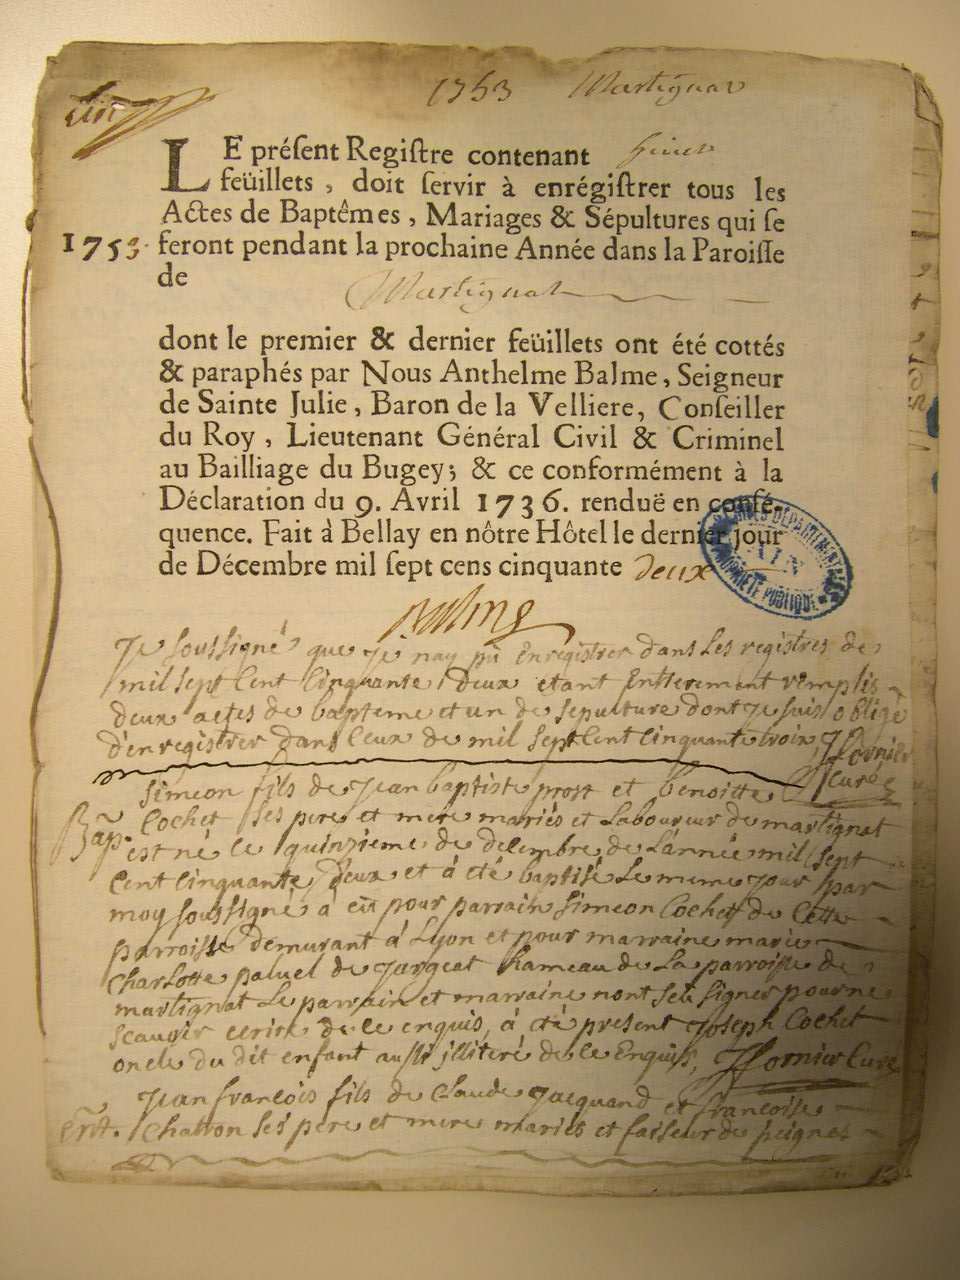 1753 Martignat
LE préſent Regiſtre contenant
feüillets, doit ſervir à enrégiſtrer tous les
Actes de Baptêmes, Mariages & Sépultures qui ſe
1753. feront pendant la prochaine Année dans la Paroiſſe
de
Martignat
dont le premier & dernier feüillets ont été cottés
& paraphés par Nous Anthelme Balme, Seigneur
de Sainte Julie, Baron de la Velliere, Conſeiller
du Roy, Lieutenant Général Civil & Criminel
au Bailliage du Bugey; & ce conformément à la
Déclaration du 9. Avril 1736. renduë en conſé-
quence. Fait à Bellay en nôtre Hôtel le dernier jour
de Décembre mil ſept cens cinquante deux
ARCHIVES DÉPARTEMENTALES
AIN
PROPRIÉTÉ PUBLIQUE
Balme
Je soussigné que je nay pû enregistrer dans les registres de
mil sept cent cinquante deux etant entierement remplis
deux actes de bapteme et un de sepulture dont je suis obligé
d'enregistrer dans ceux de mil sept cent cinquante trois, Hornier
curé
simeon fils de jean baptiste prost et benoitte
Bap. Cochet ses pere et mere mariés et laboureur de martignat
est né le quinzieme de decembre de l'année mil sept
cent cinquante deux et à été baptisé le meme jour par
moy soussigné à eü pour parrain simeon Cochet de cette
parroisse demurant à Lyon et pour marraine marie
charlotte paluel de jargeat hameau de la parroisse de
martignat le parrain et marraine nont sçeu signer pour ne
scauoir ecrire de ce enquis, à été present joseph Cochet
oncle du dit enfant aussi illiteré de ce enquis, Hornier Curé
jean francois fils de claude jacquand et francoise
Chatron ses pere et mere mariés et faiseur de peignes